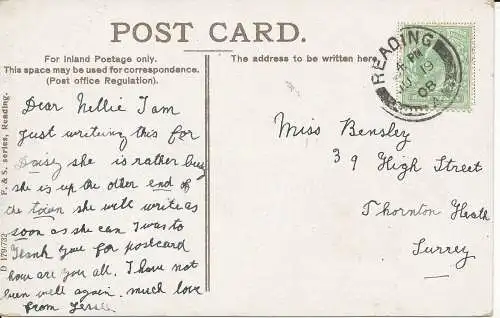 POST CARD.
For Inland Postage only.
This space may be used for correspondence.
(Post office Regulation).
The address to be written here.
Dear Nellie I am
Just writing this for
Daisy she is rather busy
she is up the other end of
the town she will write as
soon as she can I was to
Thank you for postcard
how are you all. I have not
been well again. much love
from
Miss Bensley
39 High Street
Thornton Heath
Surrey
READING
4 PM
19
08
D 179/732 F. & S. series, Reading.